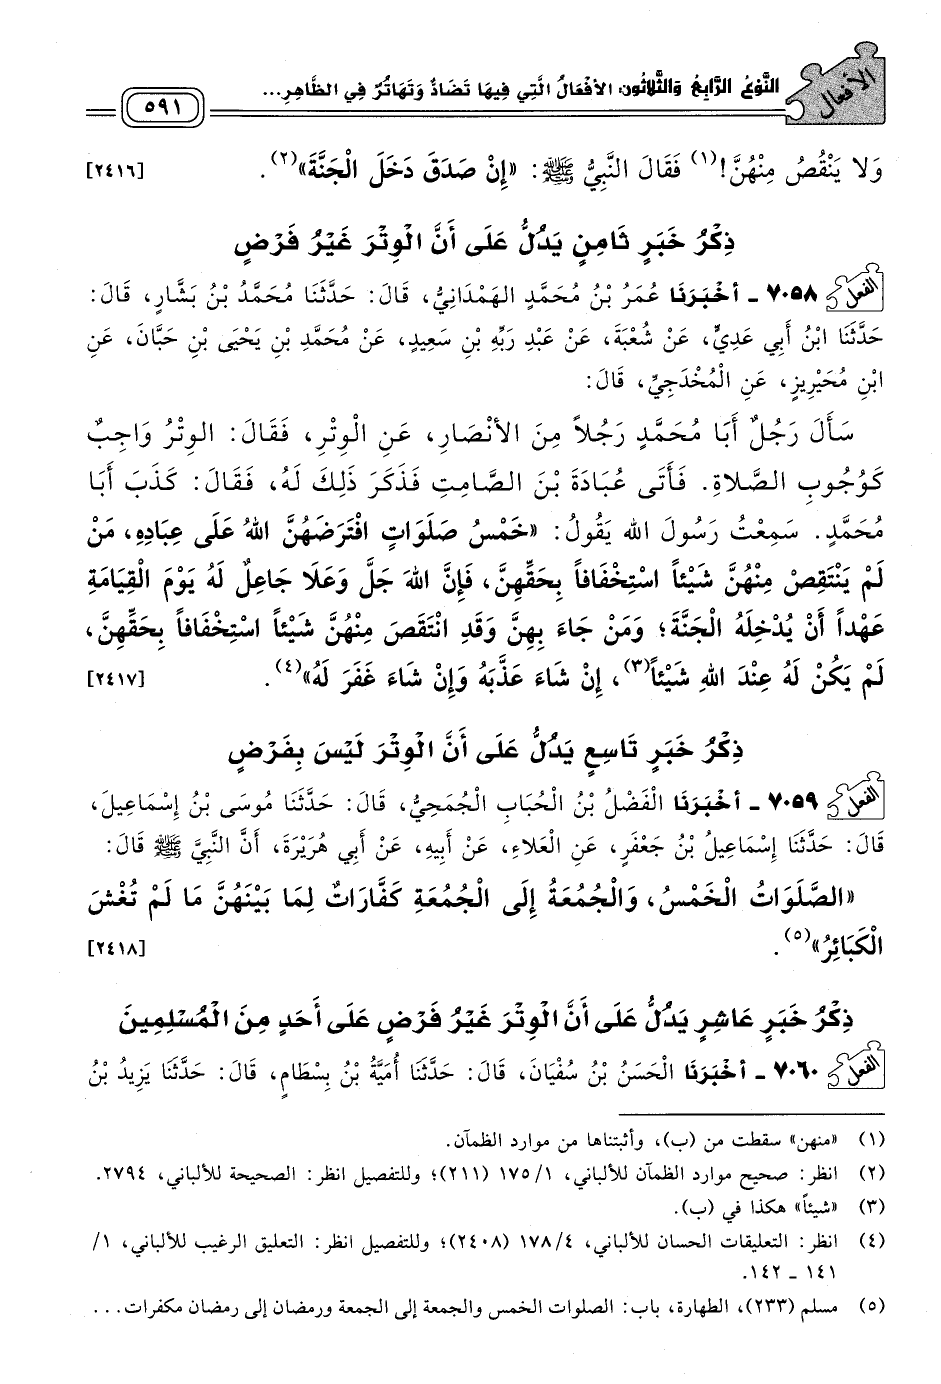 الأفعال
النَّوْعُ الرَّابِعُ وَالثَّلَاثُونَ: الأَفْعَالُ الَّتِي فِيهَا تَضَادٌ وَتَهَاتُرٌ فِي الظَّاهِرِ...
٥٩١
وَلا يَنْقُصُ مِنْهُنَّ!(١) فَقَالَ النَّبِيُّ ﷺ: «إِنْ صَدَقَ دَخَلَ الْجَنَّةَ»(٢). [٢٤١٦]
ذِكْرُ خَبَرٍ ثَامِنٍ يَدُلُّ عَلَى أَنَّ الْوِتْرَ غَيْرُ فَرْضٍ
الفعل ٧٠٥٨ - أَخْبَرَنَا عُمَرُ بْنُ مُحَمَّدٍ الهَمْدَانِيُّ، قَالَ: حَدَّثَنَا مُحَمَّدُ بْنُ بَشَّارٍ، قَالَ:
حَدَّثَنَا ابْنُ أَبِي عَدِيٍّ، عَنْ شُعْبَةَ، عَنْ عَبْدِ رَبِّهِ بْنِ سَعِيدٍ، عَنْ مُحَمَّدِ بْنِ يَحْيَى بْنِ حَبَّانَ، عَنِ
ابْنِ مُحَيْرِيزٍ، عَنِ الْمُخْدَجِيِّ، قَالَ:
سَأَلَ رَجُلٌ أَبَا مُحَمَّدٍ رَجُلاً مِنَ الأَنْصَارِ، عَنِ الْوِتْرِ، فَقَالَ: الوِتْرُ وَاجِبٌ
كَوُجُوبِ الصَّلاةِ. فَأَتَى عُبَادَةَ بْنَ الصَّامِتِ فَذَكَرَ ذَلِكَ لَهُ، فَقَالَ: كَذَبَ أَبَا
مُحَمَّدٍ. سَمِعْتُ رَسُولَ اللهِ يَقُولُ: «خَمْسُ صَلَوَاتٍ افْتَرَضَهُنَّ اللهُ عَلَى عِبَادِهِ، مَنْ
لَمْ يَنْتَقِصْ مِنْهُنَّ شَيْئاً اسْتِخْفَافاً بِحَقِّهِنَّ، فَإِنَّ اللهَ جَلَّ وَعَلَا جَاعِلٌ لَهُ يَوْمَ الْقِيَامَةِ
عَهْداً أَنْ يُدْخِلَهُ الْجَنَّةَ؛ وَمَنْ جَاءَ بِهِنَّ وَقَدِ انْتَقَصَ مِنْهُنَّ شَيْئاً اسْتِخْفَافاً بِحَقِّهِنَّ،
لَمْ يَكُنْ لَهُ عِنْدَ اللهِ شَيْئاً(٣)، إِنْ شَاءَ عَذَّبَهُ وَإِنْ شَاءَ غَفَرَ لَهُ»(٤). [٢٤١٧]
ذِكْرُ خَبَرٍ تَاسِعٍ يَدُلُّ عَلَى أَنَّ الْوِتْرَ لَيْسَ بِفَرْضٍ
الفعل ٧٠٥٩ - أَخْبَرَنَا الْفَضْلُ بْنُ الْحُبَابِ الْجُمَحِيُّ، قَالَ: حَدَّثَنَا مُوسَى بْنُ إِسْمَاعِيلَ،
قَالَ: حَدَّثَنَا إِسْمَاعِيلُ بْنُ جَعْفَرٍ، عَنِ الْعَلاءِ، عَنْ أَبِيهِ، عَنْ أَبِي هُرَيْرَةَ، أَنَّ النَّبِيَّ ﷺ قَالَ:
«الصَّلَوَاتُ الْخَمْسُ، وَالْجُمُعَةُ إِلَى الْجُمُعَةِ كَفَّارَاتٌ لِمَا بَيْنَهُنَّ مَا لَمْ تُغْشَ
الْكَبَائِرُ»(٥). [٢٤١٨]
ذِكْرُ خَبَرٍ عَاشِرٍ يَدُلُّ عَلَى أَنَّ الْوِتْرَ غَيْرُ فَرْضٍ عَلَى أَحَدٍ مِنَ الْمُسْلِمِينَ
الفعل ٧٠٦٠ - أَخْبَرَنَا الْحَسَنُ بْنُ سُفْيَانَ، قَالَ: حَدَّثَنَا أُمَيَّةُ بْنُ بِسْطَامٍ، قَالَ: حَدَّثَنَا يَزِيدُ بْنُ
(١) «منهن» سقطت من (ب)، وأثبتناها من موارد الظمآن.
(٢) انظر: صحيح موارد الظمآن للألباني، ١/ ١٧٥ (٢١١)؛ وللتفصيل انظر: الصحيحة للألباني، ٢٧٩٤.
(٣) «شيئاً» هكذا في (ب).
(٤) انظر: التعليقات الحسان للألباني، ٤/ ١٧٨ (٢٤٠٨)؛ وللتفصيل انظر: التعليق الرغيب للألباني، ١/
١٤١ - ١٤٢.
(٥) مسلم (٢٣٣)، الطهارة، باب: الصلوات الخمس والجمعة إلى الجمعة ورمضان إلى رمضان مكفرات...